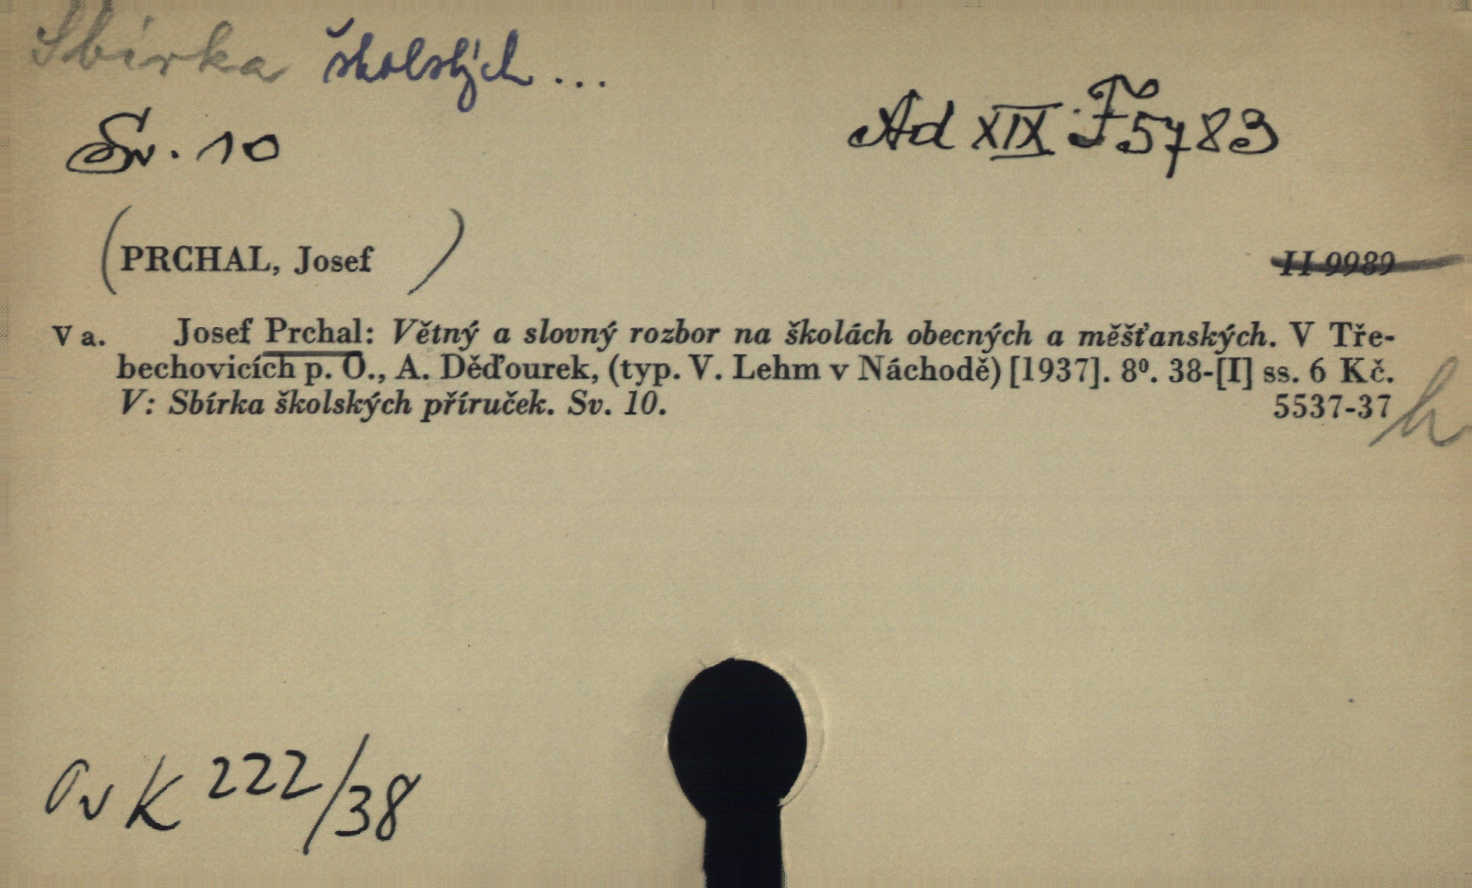 Sbírka školských ...
Sv. 10
Ad XIX F 5783
(PRCHAL, Josef )
II 9989
V a. Josef Prchal: Větný a slovný rozbor na školách obecných a měšťanských. V Tře-
bechovicích p. O., A. Děďourek, (typ. V. Lehm v Náchodě) [1937]. 8⁰. 38-[I] ss. 6 Kč.
V: Sbírka školských příruček. Sv. 10.
5537-37
K 222/38